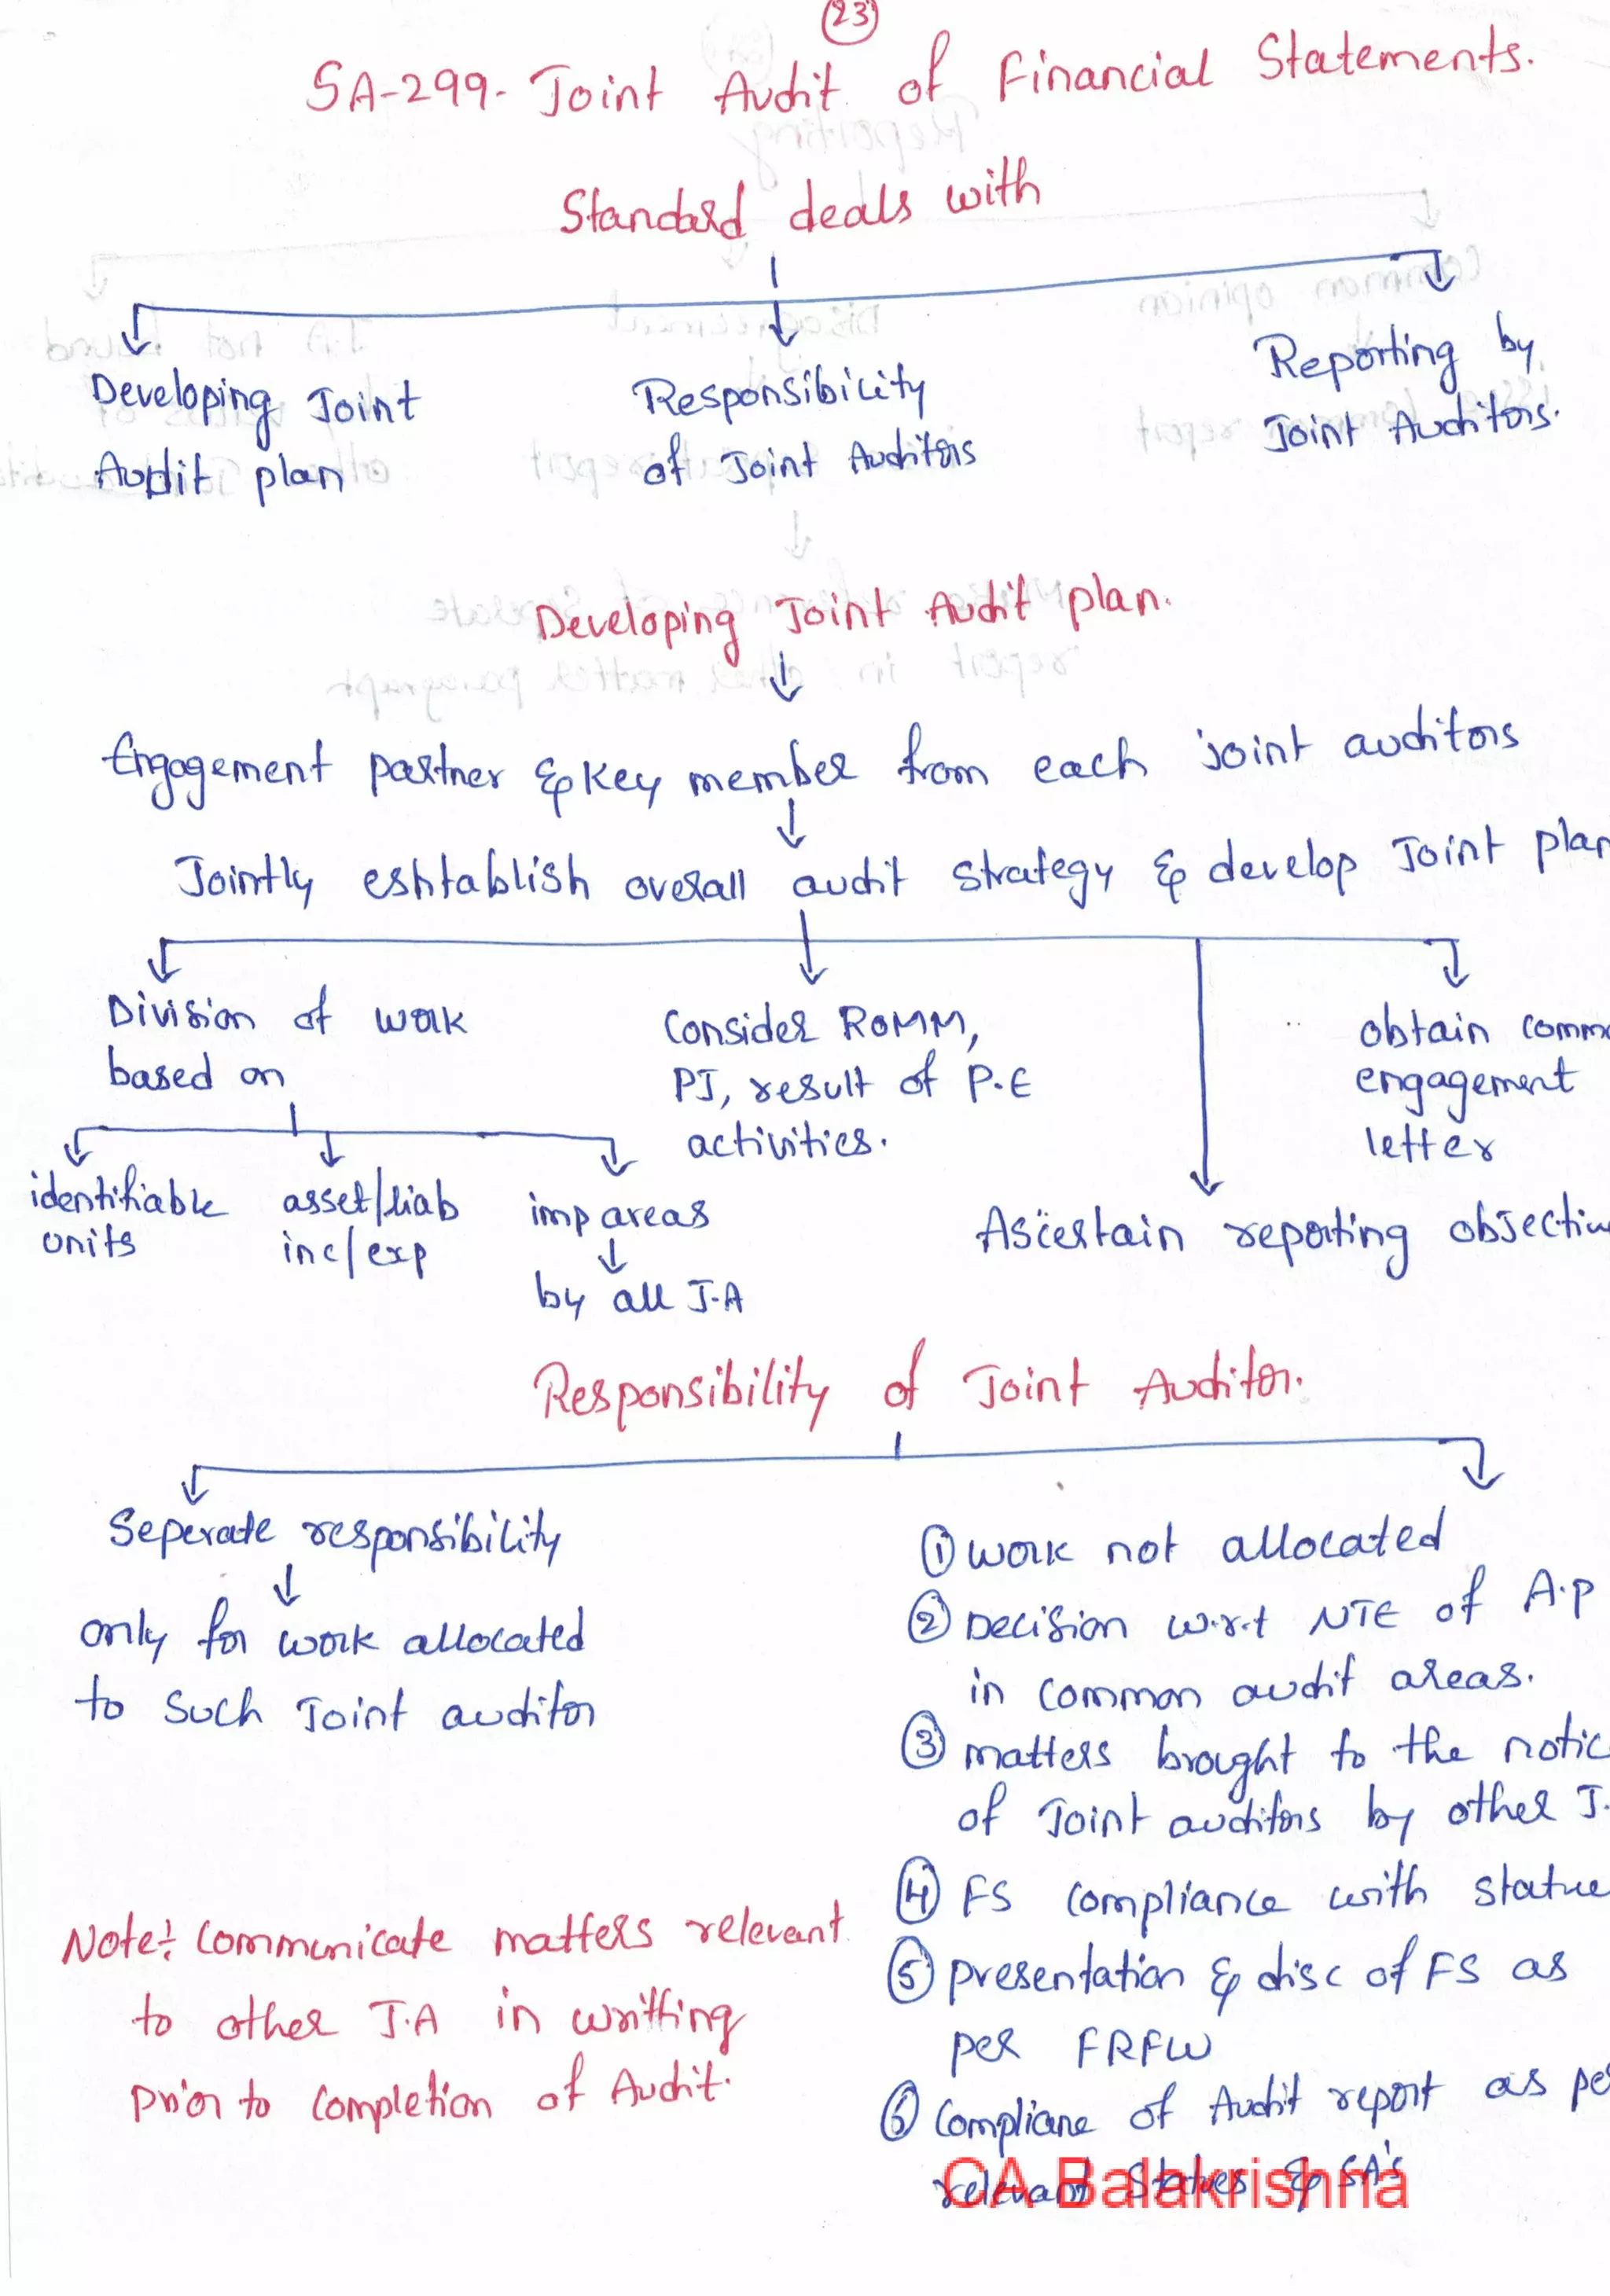 23
SA-299- Joint Audit of Financial Statements.
Standard deals with
Developing Joint
Audit plan
Responsibility
of Joint Auditors
Reporting by
Joint Auditors.
Developing Joint Audit plan.
Engagement partner & key member from each joint auditors
Jointly eshtablish overall audit strategy & develop Joint plan
Division of work
based on
identifiable
units
asset/liab
inc/exp
imp areas
by all J.A
Consider ROMM,
PJ, result of P.E
activities.
Ascertain reporting objectiv
obtain comm
engagement
letter
Responsibility of Joint Auditor.
Seperate responsibility
only for work allocated
to such Joint auditor
① work not allocated
② Decision w.r.t NTE of A.P
in common audit areas.
③ matters brought to the notic
of Joint auditors by other J.
④ FS compliance with statue
⑤ presentation & disc of FS as
per FRFW
⑥ compliane of Audit report as pe
relevant Statues & SA's
Note: Communicate matters relevant
to other J.A in writting
prior to completion of Audit.
CA Balakrishna